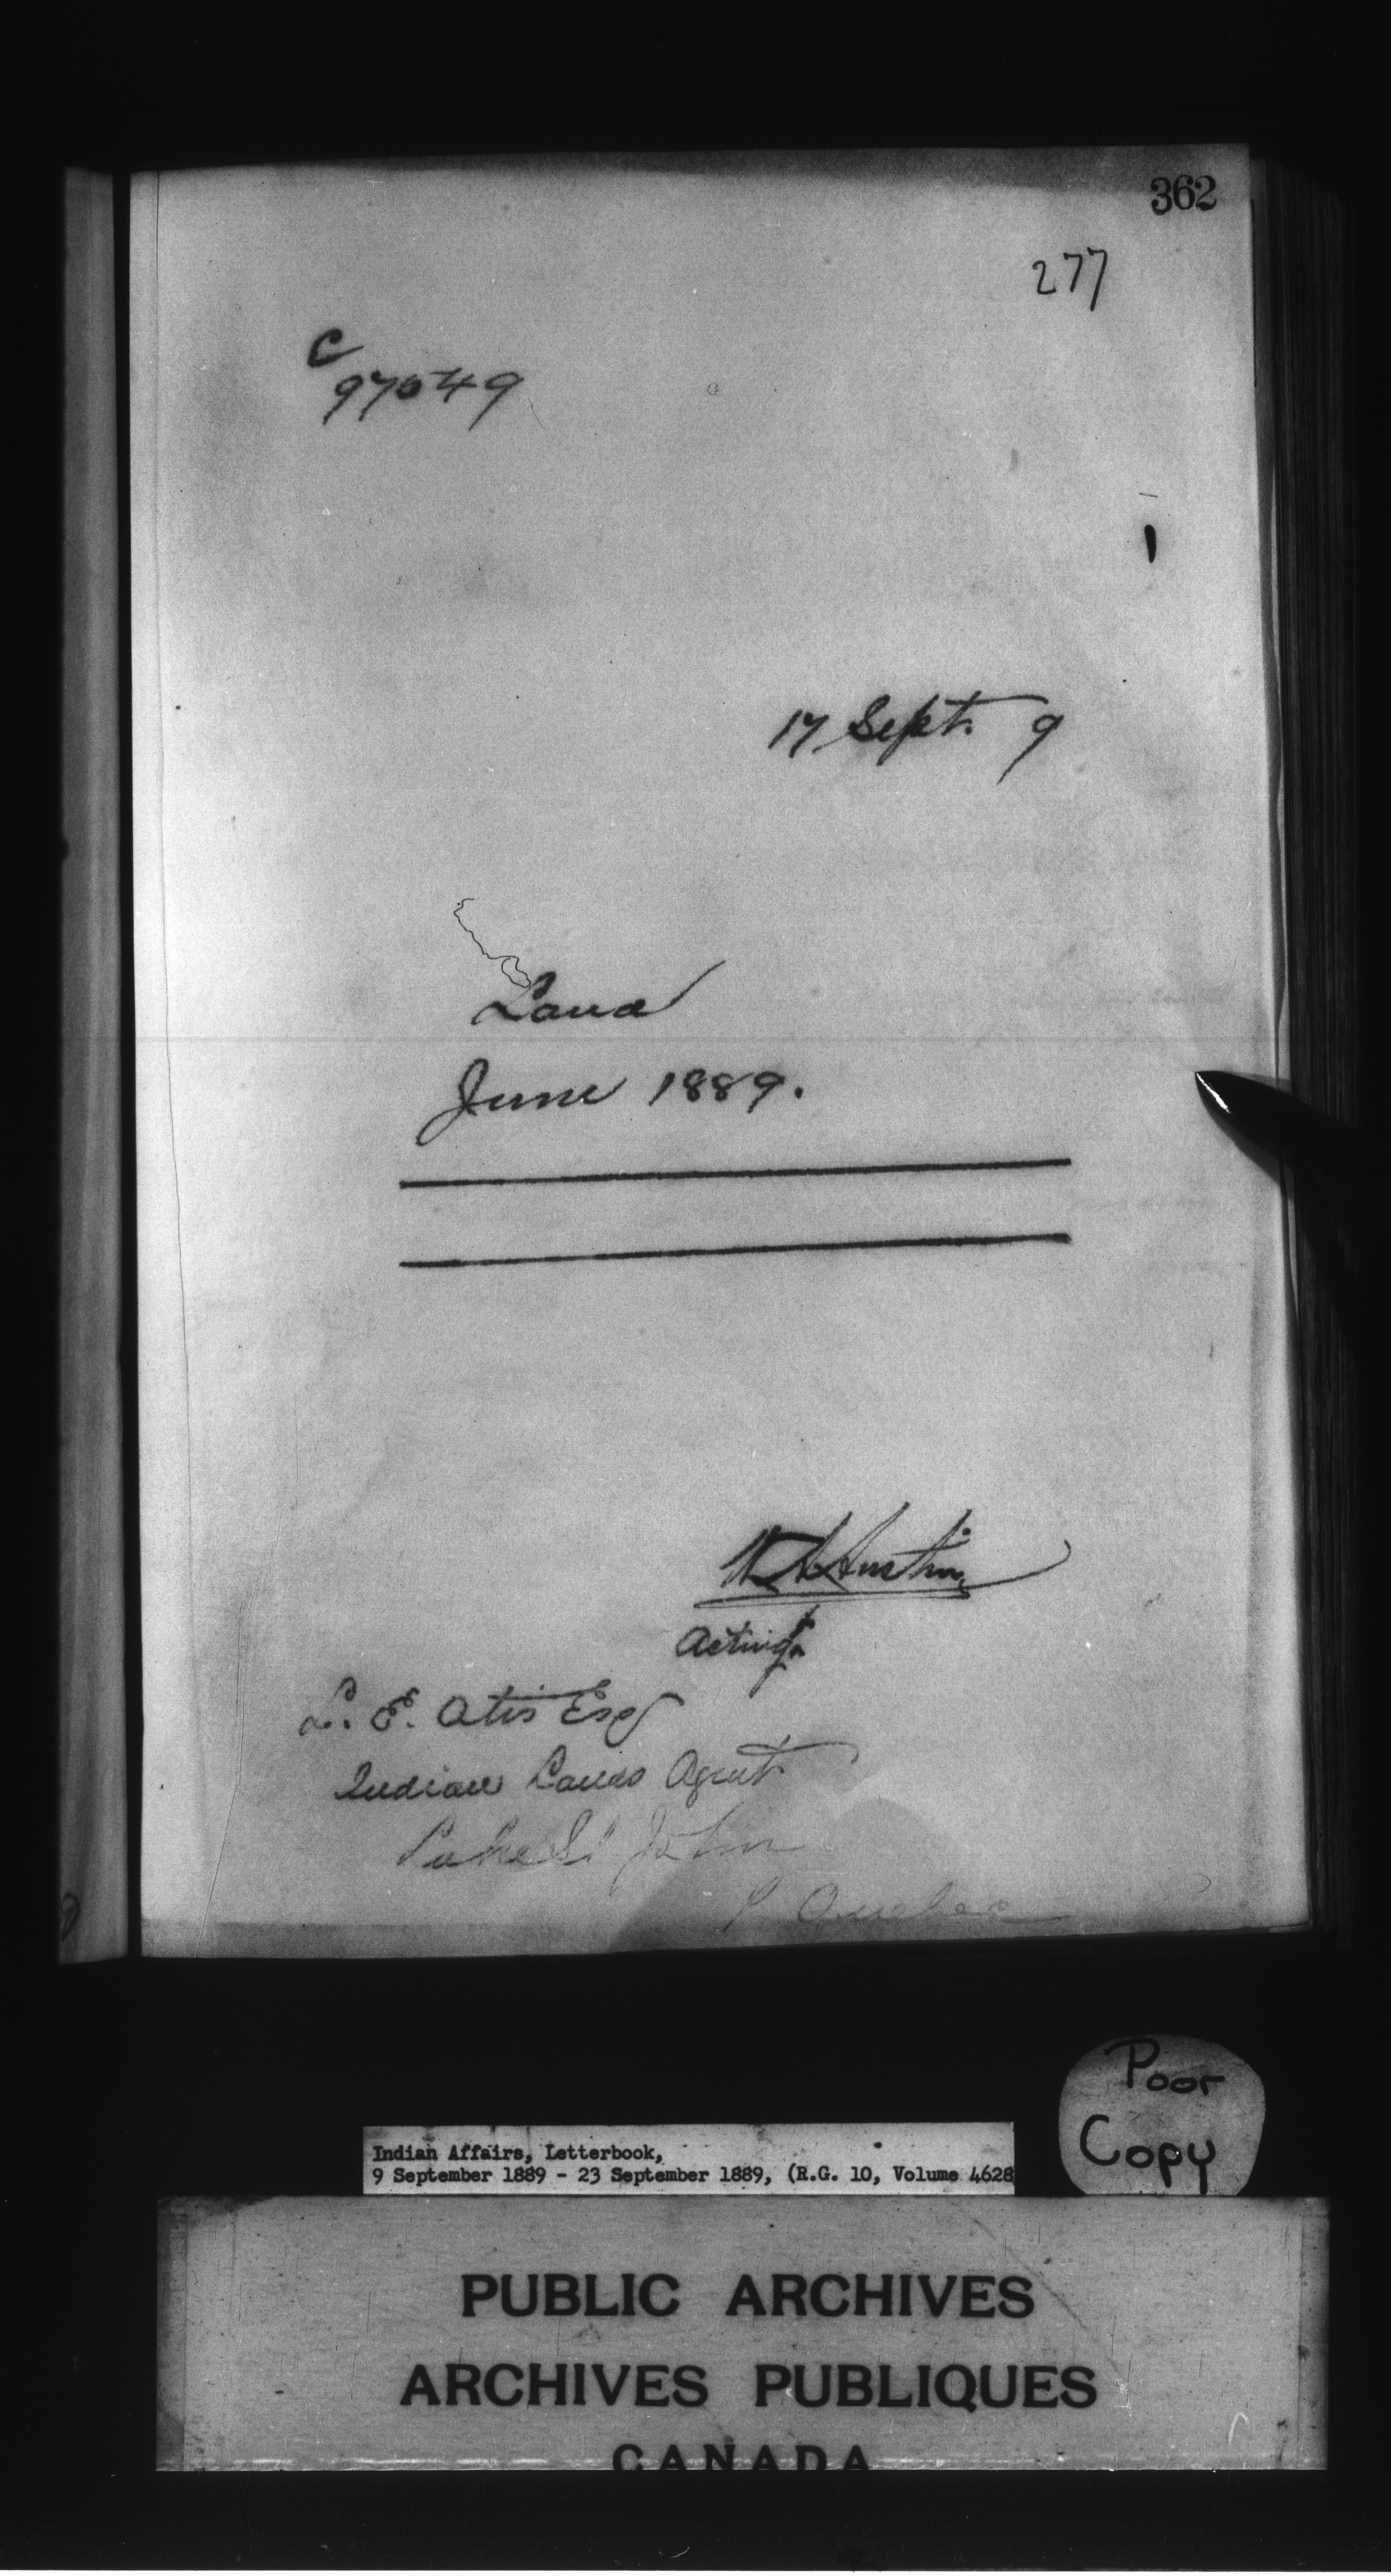 362
277
C
97049
17 Sept. 9
Land
June 1889.
Acting
L. E. Otis Esq
Indian Lands Agent
Lake St John
P. Quebec
Poor
Copy
Indian Affairs, Letterbook,
9 September 1889 - 23 September 1889, (R.G. 10, Volume 4628
PUBLIC ARCHIVES
ARCHIVES PUBLIQUES
CANADA